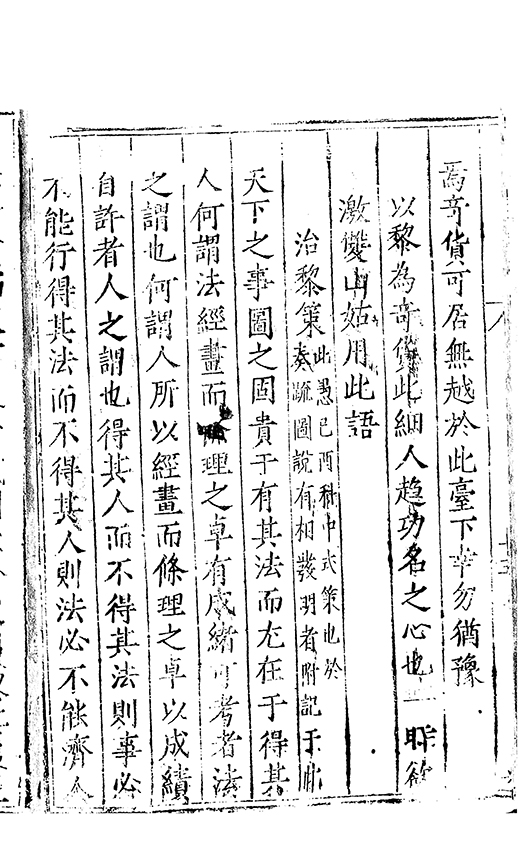 爲奇貨可居無越於此臺下幸勿猶豫
以黎為奇貨此細人趨功名之心也一時欲
激變山姑用此語
治黎策此愚己酉科中式策也於
奏疏圖說有相發明者附記于此
天下之事圖之固貴于有其法而尤在于得其
人何謂法經畫而條理之卓有成緒可考者法
之謂也何謂人所以經畫而條理之卓以成績
自許者人之謂也得其人而不得其法則事必
不能行得其法而不得其人則法必不能濟人